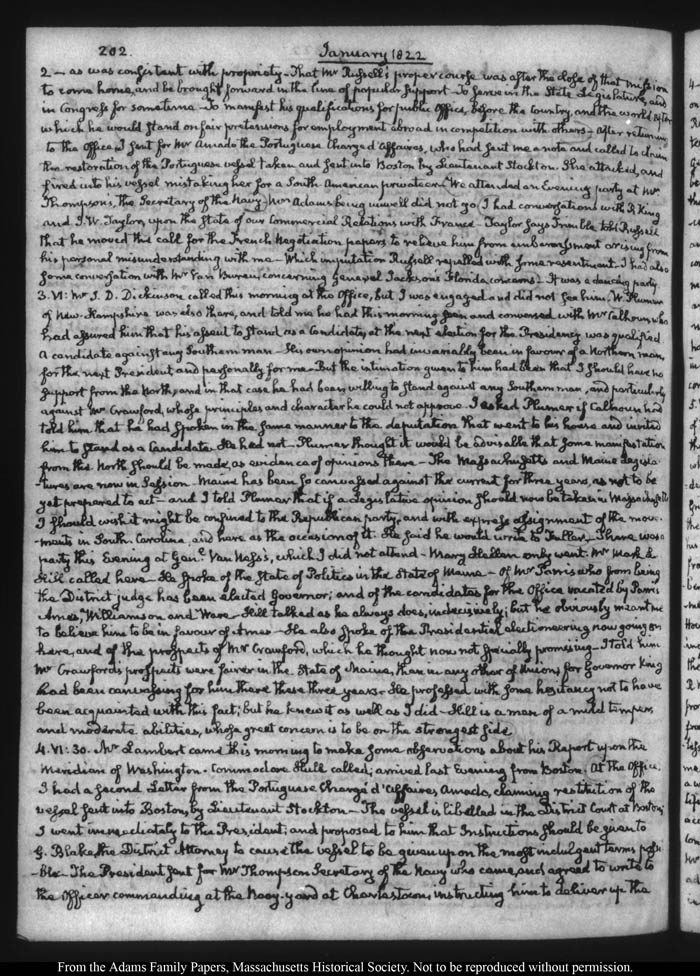 202.
January 1822
2 — as was consistent with propriety. That Mr Russell's proper course was after the close of that mission
to come home, and be brought forward in the line of popular support. To serve in the State Legislature, and
in Congress for sometime. To manifest his qualifications for public Office, before the Country, and the world, after
which he would stand on fair pretensions for employment abroad in competition with others — After returning
to the Office, I sent for Mr Amado the Portuguese Chargé d'Affaires, who had sent me a note and called to claim
the restoration of the Portuguese vessel taken and sent into Boston by Lieutenant Stockton. She attacked, and
fired into his vessel mistaking her for a South American privateer — We attended an Evening party at Mr
Thompson's, the Secretary of the Navy. Mrs Adams being unwell did not go. I had conversations with R. King
and J. W. Taylor, upon the State of our Commercial Relations with France — Taylor says Trimble told Russell
that he moved the call for the French Negotiation papers to relieve him from embarrassment arising from
his personal misunderstanding with me — Which imputation Russell repelled with some resentment. I had also
some conversation with Mr Van Buren concerning General Jackson's Florida concerns — It was a dancing party.
3. VI: Mr J. D. Dickinson called this morning at the Office, but I was engaged and did not see him. W. Plumer
of New-Hampshire was also there, and told me he had this morning seen and conversed with Mr Calhoun, who
had assured him that his assent to stand as a Candidate, at the next election for the Presidency was qualified
a candidate against any Southern man — His own opinion had invariably been in favour of a Northern man,
for the next President, and personally for me. But the intimation given to him had been that I should have no
support from the North, and in that case he had been willing to stand against any Southern man, and particularly
against Mr Crawford, whose principles and character he could not approve. I asked Plumer if Calhoun had
told him that he had spoken in the same manner to the deputation that went to his house and invited
him to stand as a Candidate. He had not — Plumer thought it would be advisable that some manifestation
from the North should be made, as evidence of opinions there — The Massachusetts and Maine Legisla-
tures are now in Session. Maine has been so canvassed against the current for three years, as not to be
yet prepared to act — and I told Plumer that if a Legislative opinion should now be taken in Massachusetts
I should wish it might be confined to the Republican party, and with express assignment of the move-
ments in South Carolina, and here as the occasion of it. He said he would write to Fuller. There was a
party this Evening at Genl Van Ness's, which I did not attend — Mary Hellen only went. Mr Mark L.
Hill called here — He spoke of the State of Politics in the State of Maine — Of Mr Parris who from being
the District judge has been elected Governor; and of the candidates for the Office vacated by Parris
Ames, Williamson and Ware — Hill talked as he always does, indecisively; but he obviously meant me
to believe him to be in favour of Ames — He also spoke of the Presidential electioneering now going on
here, and of the prospects of Mr Crawford, which he thought now not specially promising — I told him
Mr Crawford's prospects were fairer in the State of Maine, than in any other of the Union; for Governor King
had been canvassing for him there these three years. He professed with some hesitancy not to have
been acquainted with this fact; but he knew it as well as I did — Hill is a man of a mild temper,
and moderate abilities, whose great concern is to be on the strongest side.
4. VI: 30. Mr Lambert came this morning to make some observations about his Report upon the
Meridian of Washington. Commodore Hull called; arrived last Evening from Boston. At the Office,
I had a second Letter from the Portuguese Chargé d'Affaires Amado, claiming restitution of the
vessel sent into Boston, by Lieutenant Stockton — The vessel is libelled in the District Court at Boston;
I went immediately to the President; and proposed to him that Instructions should be given to
G. Blake, the District Attorney to cause the vessel to be given up on the most indulgent terms possi-
ble — The President sent for Mr Thompson Secretary of the Navy who came, and agreed to write to
the Officer commanding at the Navy-yard at Charlestown, instructing him to deliver up the
From the Adams Family Papers, Massachusetts Historical Society. Not to be reproduced without permission.